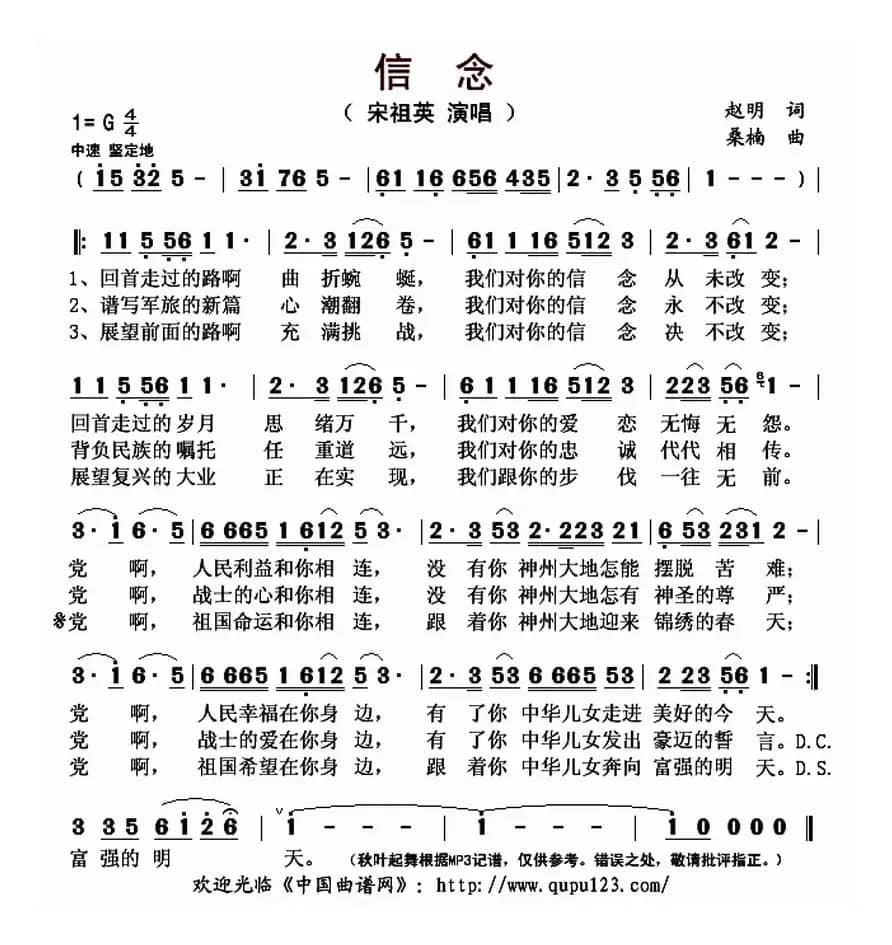 信 念
（ 宋祖英 演唱 ）
1= G 4/4
赵明 词
中速 坚定地
桑楠 曲
( 15 32 5 - | 31 76 5 - | 61 16 656 435 | 2· 3 5 56 | 1 - - - ) |
‖: 11 5 56 1 1· | 2· 3 126 5 - | 61 1 16 512 3 | 2· 3 61 2 - |
1、回首走过的路啊 曲 折蜿 蜒， 我们对你的信 念 从 未改 变；
2、谱写军旅的新篇 心 潮翻 卷， 我们对你的信 念 永 不改 变；
3、展望前面的路啊 充 满挑 战， 我们对你的信 念 决 不改 变；
1 1 5 56 1 1· | 2· 3 126 5 - | 6 1 1 16 512 3 | 223 56 6 1 - |
回首走过的 岁月 思 绪万 千， 我们对你的爱 恋 无悔 无 怨。
背负民族的 嘱托 任 重道 远， 我们对你的忠 诚 代代 相 传。
展望复兴的 大业 正 在实 现， 我们跟你的步 伐 一往 无 前。
3· 1 6· 5 | 6 665 1 612 5 3· | 2· 3 53 2· 223 21 | 6 53 231 2 - |
党 啊， 人民利益和你相 连， 没 有你 神州大地怎能 摆脱 苦 难；
党 啊， 战士的心和你相 连， 没 有你 神州大地怎有 神圣的尊 严；
党 啊， 祖国命运和你相 连， 跟 着你 神州大地迎来 锦绣的春 天；
3· 1 6· 5 | 6 665 1 612 5 3· | 2· 3 53 6 665 53 | 2 223 56 1 - :‖
党 啊， 人民幸福在你身 边， 有 了你 中华儿女走进 美好的今 天。
党 啊， 战士的爱在你身 边， 有 了你 中华儿女发出 豪迈的誓 言。D.C.
党 啊， 祖国希望在你身 边， 跟 着你 中华儿女奔向 富强的明 天。D.S.
3 35 6 1 2 6 | ∨1 - - - | 1 - - - | 10 000 ‖
富 强的 明 天。 （秋叶起舞根据MP3记谱，仅供参考。错误之处，敬请批评指正。）
欢迎光临《中国曲谱网》: http://www.qupu123.com/